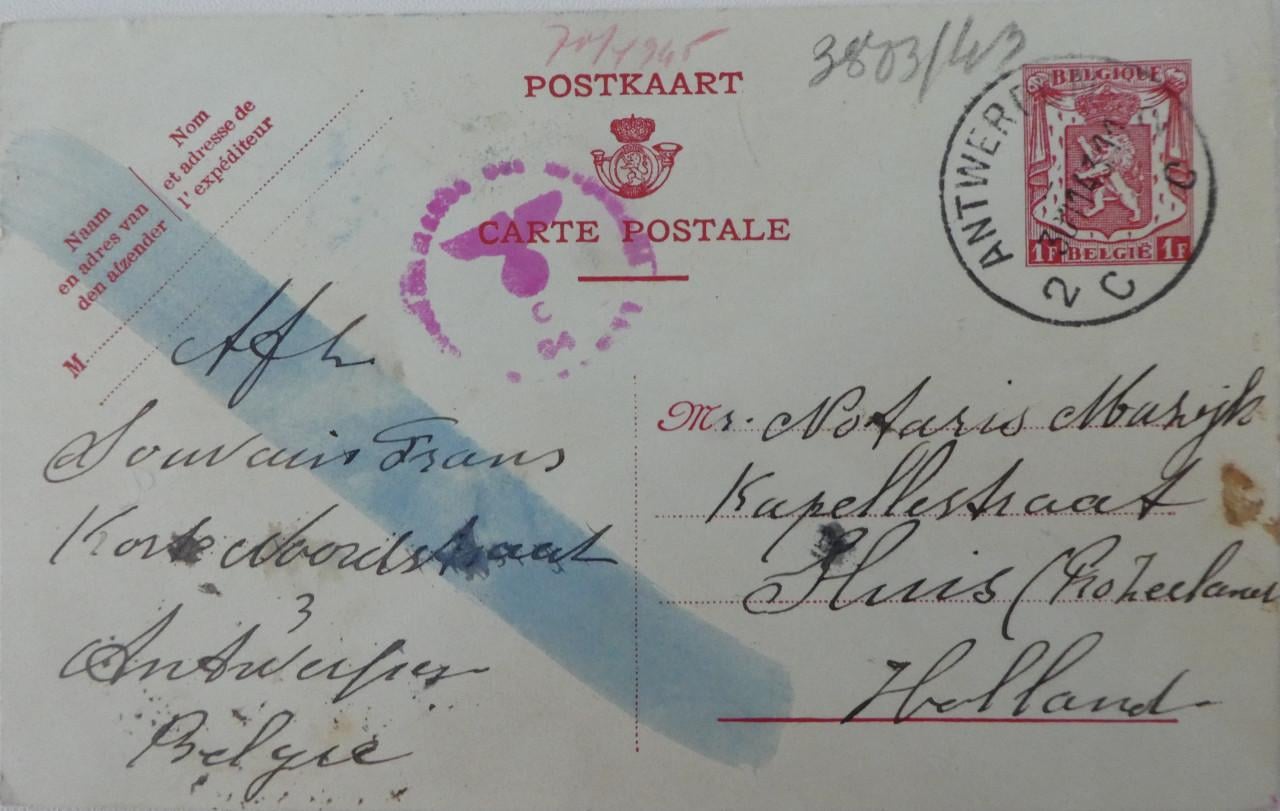 3803/43
POSTKAART
CARTE POSTALE
BELGIQUE
1F BELGIË 1F
2 C C
Nom
et adresse de
l'expéditeur
Naam
en adres van
den afzender
M
Afz
Frans
Korte Noordstraat
3
Antwerpen
Belgie
Mr. Notaris
Kapellestraat
Sluis (Pro Zeeland
Holland